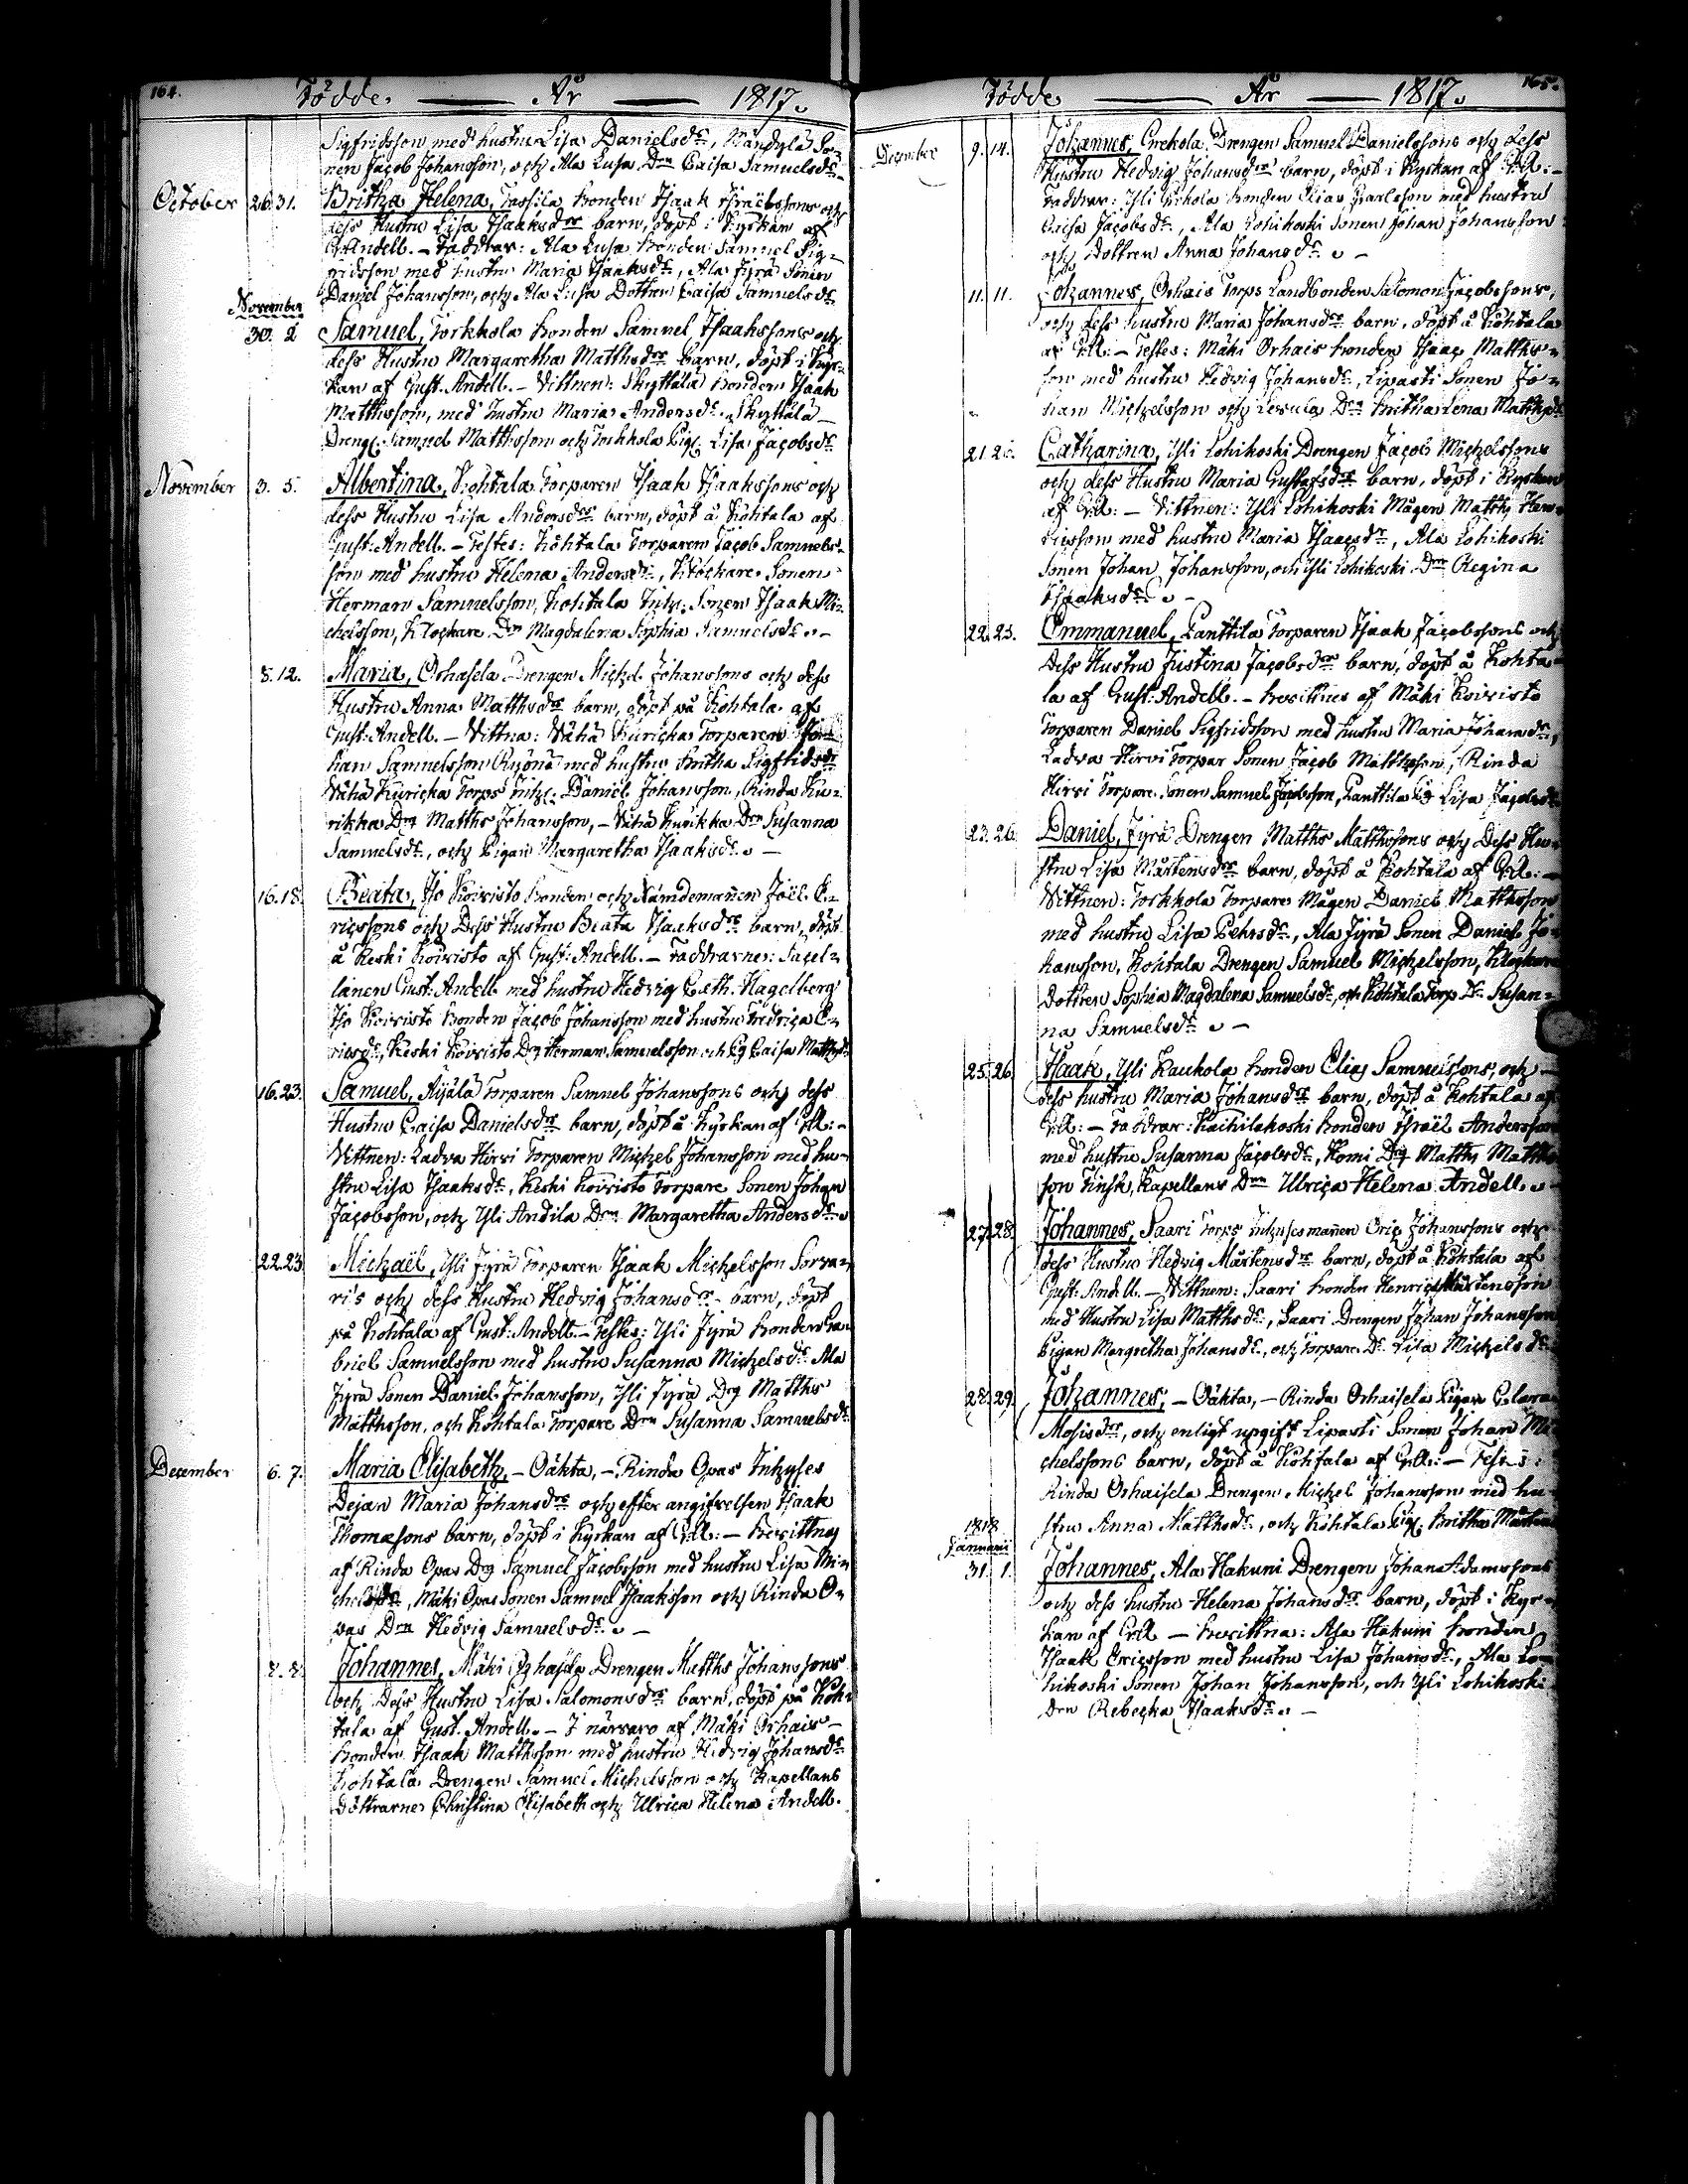 164.
Födde. — År — 1817.
Sigfridsson med hustru Lisa Danielsdr, Mändylä So-
nen Jacob Johansson, och Ala Lusa Drn Caisa Samuelsdr. –
October 26. 31. Britha Helena, Tassila Bonden Isaak Israelssons och
dess Hustru Lisa Isaaksdrs barn, döpt i Kyrkan af
G. Andell. – Faddrar: Ala Lusa Bonden Samuel Sig-
fridsson med hustru Maria Isaaksdr, Ala Jyrä Sonen
Daniel Johansson, och Ala Lusa Dottren Caisa Samuelsdr.
November
30. 2 Samuel, Torkkola Bonden Samuel Isaakssons och
dess Hustru Margaretha Matthsdrs barn, döpt i Kyr-
kan af Gust. Andell. – Vittnen: Skyttälä Bonden Isaak
Matthsson, med hustru Maria Andersdr, Skyttälä
Dreng. Samuel Matthsson och Torkkola Pig. Lisa Jacobsdr
November 3. 5. Albertina, Kohtala Torparen Isaak Isaakssons och
dess Hustru Lisa Andersdrs barn, döpt å Kohtala af
Gust. Andell. – Testes: Kohtala Torparen Jacob Samuels-
son med hustru Helena Andersdr, Klockare Sonen
Herman Samuelsson, Kohtala Inhys. Sonen Isaak Mi-
chelsson, Klockare Dn Magdalena Sophia Samuelsdr. –
8. 12. Maria, Orhasela Drengen Michel Johanssons och dess
Hustru Anna Matthsdrs barn, döpt på Kohtala af
Gust. Andell. – Vittna: Vähä Kuricka Torparen Jo-
han Samuelsson Ryönä med hustru Britha Sigfridsdr
Vähä Kuricka Torps Inhys. Daniel Johansson, Rinda Ku-
rikka Drg Matths Johansson, – Vähä Kurikka Drn Susanna
Samuelsdr, och Pigan Margaretha Isaaksdr. –
16. 18. Beata, Iso Koivisto Bonden och Nämdemannen Joël E-
ricssons och Dess Hustru Beata Isaaksdrs barn, döpt
å Keski Koivisto af Gust: Andell. – Faddrarne: Sacel-
lanen Gust: Andell med hustru Hedvig Cath. Hagelberg
Iso Koivisto Bonden Jacob Johansson med hustru Fredrica E-
ricsdr, Keski Koivisto Drg Herman Samuelsson och Pg Caisa Matthsdr
16. 23. Samuel, Äijälä Torparen Samuel Johanssons och dess
Hustru Caisa Danielsdrs barn, döpt å Kyrkan af GA: –
Vittnen: Ladva Hirvi Torparen Michel Johansson med hu-
stru Lisa Isaaksdr, Keski Koivisto Torpare Sonen Johan
Jacobsson, och Yli Andila Drn Margaretha Andersdr. –
22. 23. Michaël, Yli Jyrä Torparen Isaak Michelsson Sorva-
ri's och dess Hustru Hedvig Johansdrs barn, döpt
på Kohtala af Gust. Andell. – Testes: Yli Jyrä Bonden Ga-
briel Samuelsson med hustru Susanna Michelsdr, Ala
Jyrä Sonen Daniel Johansson, Yli Jyrä Drg Matths
Matthsson, och Kohtala Torpare Drn Susanna Samuelsdr.
December 6. 7. Maria Elisabeth, – Oäkta, – Rinda Opas Inhyses
Dejan Maria Johansdrs och efter angifvelsen Isaak
Thomæsons barn, döpt i Kyrkan af GA: – Bevittnas
af Rinda Opas Drg Samuel Jacobsson med hustru Lisa Mi-
chelsdr, Mäki Opas Sonen Samuel Isaaksson och Rinda O-
pas Drn Hedvig Samuelsdr. –
8. 8. Johannes, Mäki Orhasela Drengen Matths Johanssons
och Dess Hustru Lisa Salomonsdrs barn, döpt på Koh-
tala af Gust. Andell. – I närvaro af Mäki Orhais –
Bonden Isaak Matthsson med hustru Hedvig Johansdr
Kohtala Drengen Samuel Michelsson och Kapellans
Döttrarne Christina Elisabeth och Ulrica Helena Andell.
165.
Födde — År — 1817.
December 9. 14. Johannes, Drengen Samuel Danielssons och dess
Hustru Hedvig Johansdrs barn, döpt i Kyrkan af GA: –
Faddrar: Yli Bonden Elias Carlsson med hustru
Caisa Jacobsdr, Ala Lohikoski Sonen Johan Johansson
och Dottren Anna Johansdr. –
11. 11. Johannes, Orhais Torps Landbonden Salomon Jacobssons,
och dess hustru Maria Johansdrs barn, döpt å Kohtala
af GA. – Testes: Mäki Orhais Bonden Isaac Matths-
son med hustru Hedvig Johansdr, Lipasti Sonen Jo-
han Michelsson och Drn Britha Lena Matthsdr
21. 26. Catharina, Yli Lohikoski Drengen Jacob Michelssons
och dess Hustru Maria Gustafsdrs barn, döpt i Kyrkan
af GA: – Vittnen: Yli Lohikoski Mågen Matths Hen-
ricsson med hustru Maria Isaacsdr, Ala Lohikoski
Sonen Johan Johansson, och Yli Lohikoski Drn Regina
Isaaksdr. –
22. 23. Emmanuel, Panttila Torparen Isaak Jacobssons och
Dess Hustru Justina Jacobsdrs barn, döpt å Kohta-
la af Gust: Andell. – Bevittnes af Mäki Koivisto
Torparen Daniel Sigfridsson med hustru Maria Johansdr,
Ladva Hirvi Torpar Sonen Jacob Matthsson, Rinda
Hirvi Torpare Sonen Samuel Jacobsson, Panttila Pig Lisa Jacobsdr
23. 26. Daniel, Jyrä Drengen Matths Matthssons och Dess Hu-
stru Lisa Mårtensdrs barn, döpt å Kohtala af GA: –
Vittnen: Torkkola Torpare Mågen Daniel Matthsson
med hustru Lisa Pehrsdr, Ala Jyrä Sonen Daniel Jo-
hansson, Kohtala Drengen Samuel Michelsson, Klockare
dottren Sophia Magdalena Samuelsdr, och Kohtala Torp. Dr Susan-
na Samuelsdr. –
25. 26. Isaak, Yli Kauhola Bonden Elias Samuelssons, och
dess hustru Maria Johansdrs barn, döpt å Kohtala af
GA: – Faddrar: Bonden Israël Andersson
med hustru Susanna Jacobsdr, Komi Drg Matths Matths-
son Finsk, Kapellans Drn Ulrica Helena Andell. –
27. 28. Johannes, Saari Torps Inhysesmannen Eric Johanssons och
dess Hustru Hedvig Mårtensdrs barn, döpt å Kohtala af
Gust: Andell. – Vittnen: Saari Bonden Henric Mårtensson
med Hustru Lisa Matthsdr, Saari Drengen Johan Johansson
Pigan Margretha Johansdr, och Torpare Dr Lisa Michelsdr
28. 29. Johannes, – Oäkta, – Rinda Orhaisela Pigan
Mosisdrs, och enligt upgift Lipasti Sonen Johan Mi-
chelssons barn, döpt å Kohtala af GA: – Testes:
Rinda Orhaisela Drengen Michel Johansson med hu-
stru Anna Matthsdr, och Kohtala Pig. Britha
1818
Januari
31. 1. Johannes, Ala Hakuni Drengen Johan Adamssons
och dess hustru Helena Johansdrs barn, döpt i Kyr-
kan af GA – Bevittna: Ala Hakuni Bonden
Isaak Ericsson med hustru Lisa Johansdr, Ala Lo-
hikoski Sonen Johan Johansson, och Yli Lohikoski
Drn Rebecka Isaaksdr. –